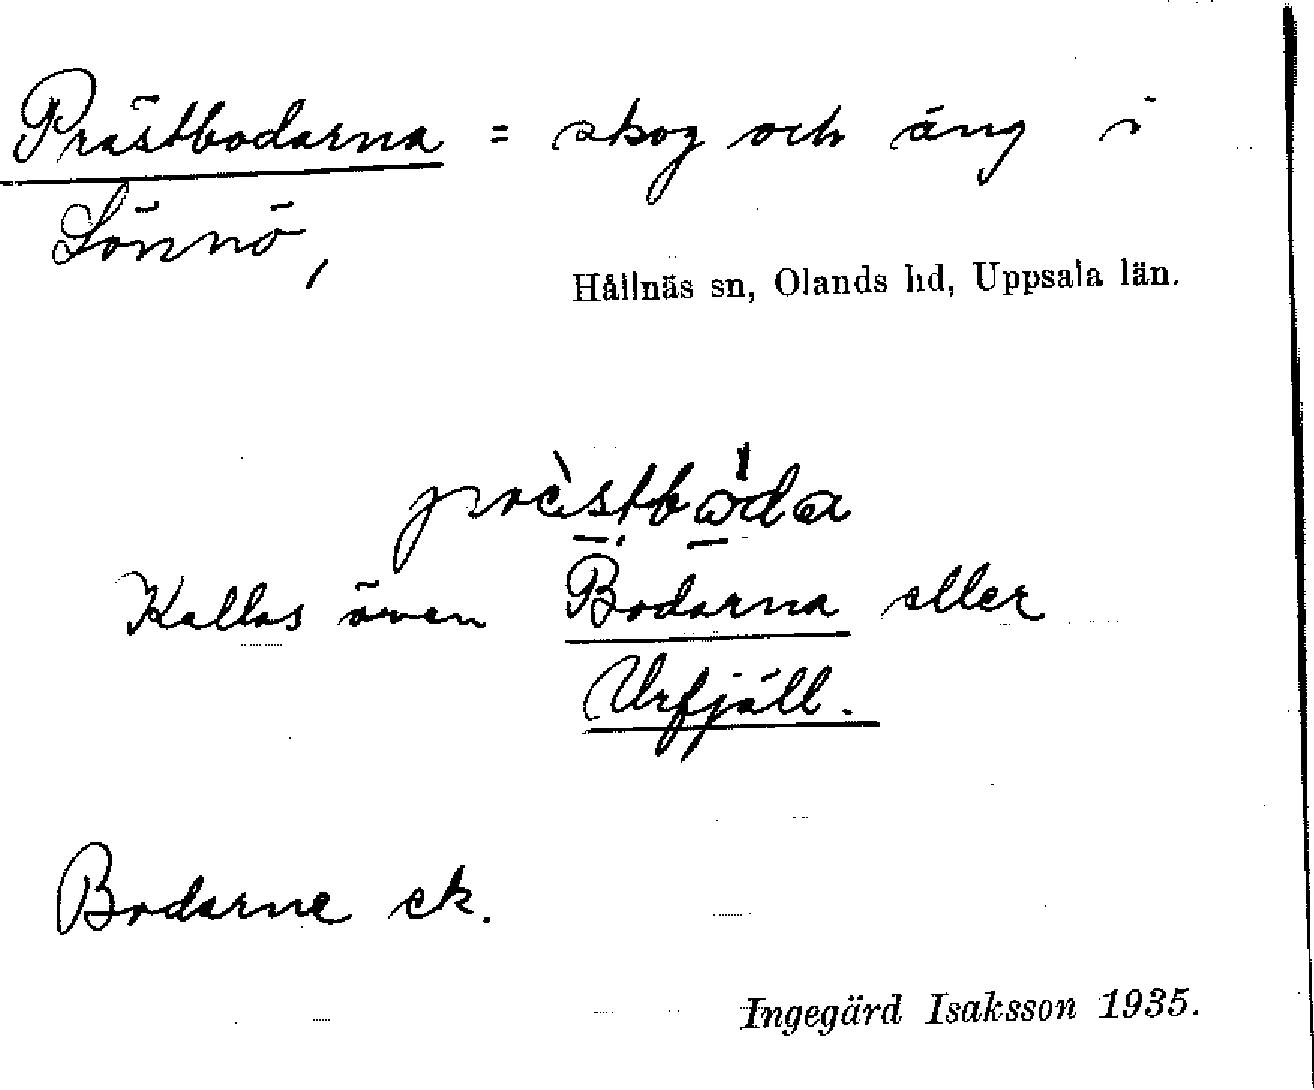 Prästbodarna = skog och äng i
Lönnö,
Hållnäs sn, Olands hd, Uppsala län.
Kallas även Bodarna eller
Urfjäll.
Bodarne ek.
Ingegärd Isaksson 1935.